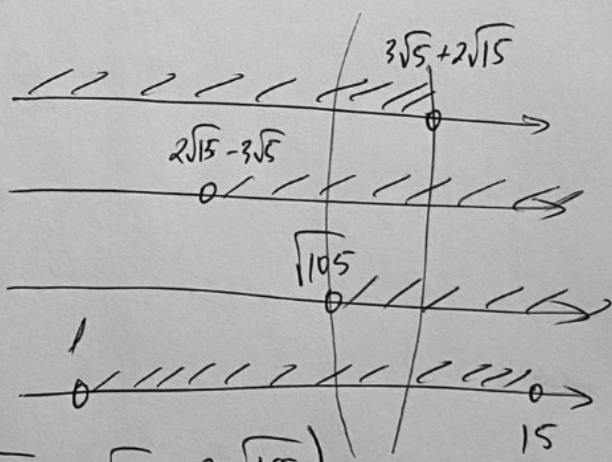 3√5+2√15
2√15-3√5
√105
1
15